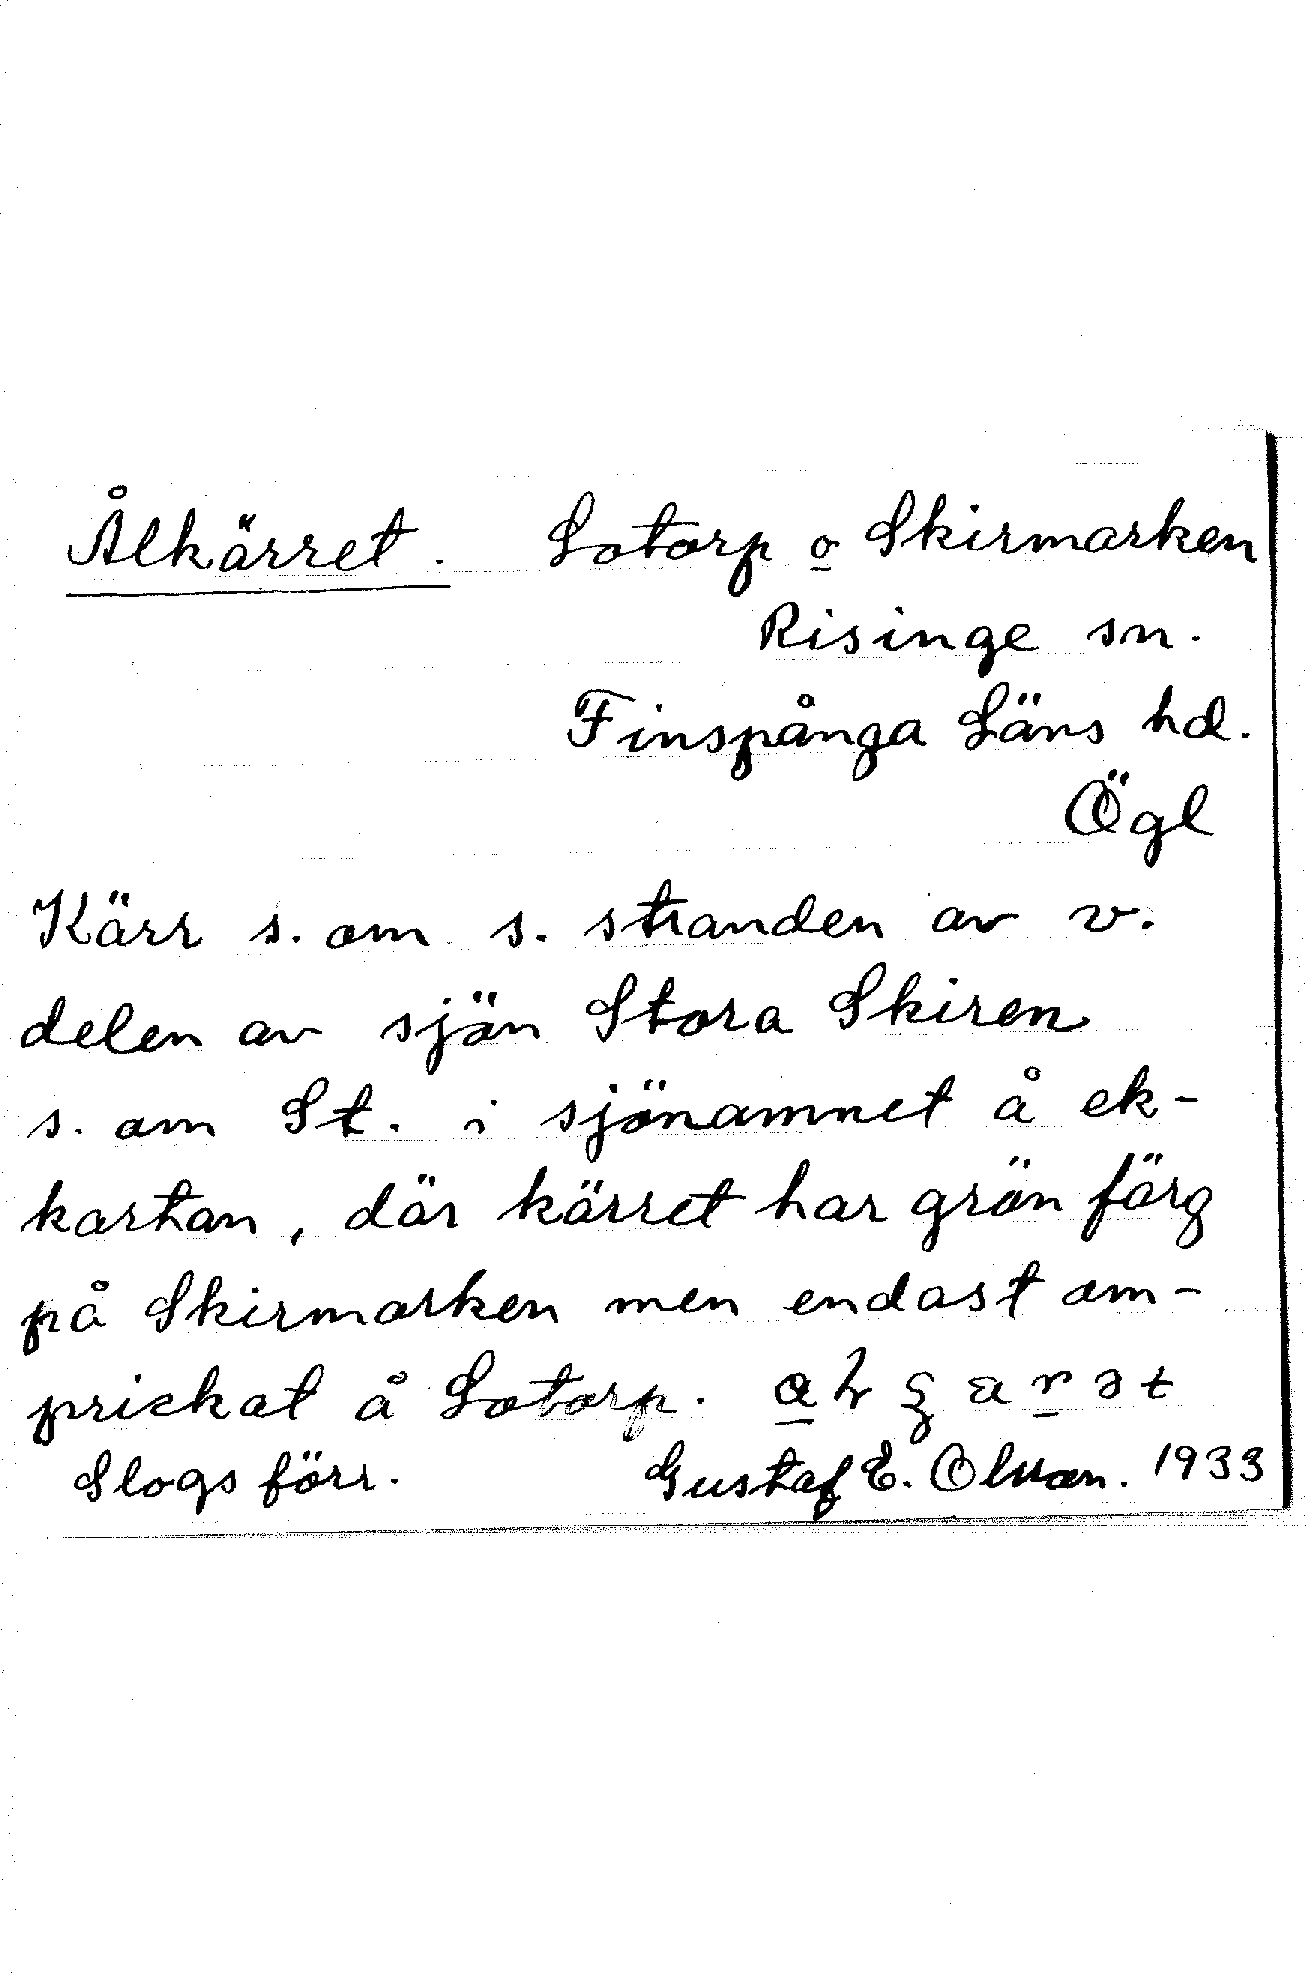 Ålkärret. Lotorp o Skirmarken
Risinge sn.
Finspånga Läns hd.
Ögl
Kärr s. om s. stranden av v.
delen av sjön Stora Skiren
s. om St. i sjönamnet å ek-
kartan, där kärret har grön färg
på Skirmarken men endast om-
prickat å Lotorp.
Slogs förr. Gustaf E. Olsson. 1933